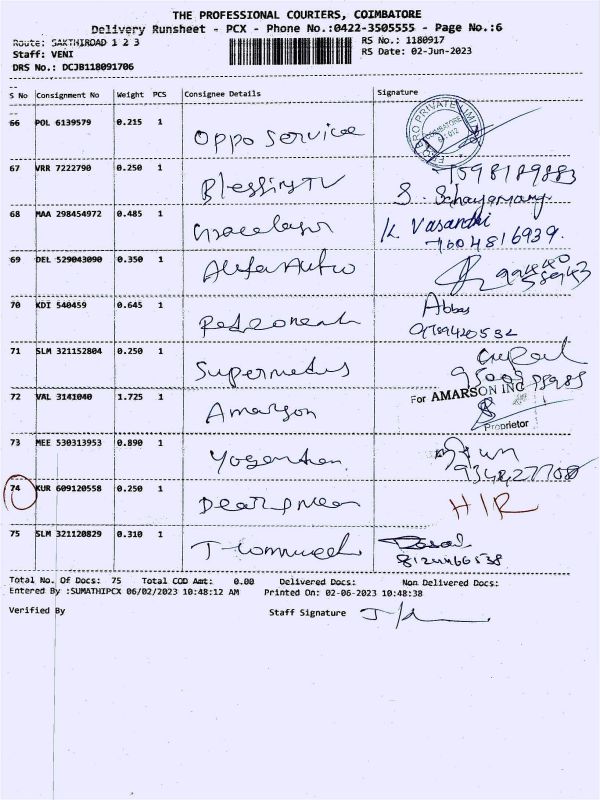 THE PROFESSIONAL COURIERS, COIMBATORE
Delivery Runsheet - PCX - Phone No.:0422-3505555 - Page No.:6
Route: SAKTHIROAD 1 2 3
RS No.: 1180917
Staff: VENI
RS Date: 02-Jun-2023
DRS No.: DCJB118091706
S No Consignment No Weight PCS Consignee Details Signature
66 POL 6139579 0.215 1 Oppo Service
PRIVATE LIMITED COIMBATORE
67 VRR 7222790 0.250 1 Blessing TV
7598189883
S.
68 MAA 298454972 0.485 1
K Vasandhi
7604816939.
69 DEL 529043090 0.350 1 Auto
70 KDI 540459 0.645 1
Abbas
71 SLM 321152804 0.250 1
72 VAL 3141040 1.725 1 Amarson
For AMARSON INC
Proprietor
73 MEE 530313953 0.890 1
74 KUR 609120558 0.250 1
H/R
75 SLM 321120829 0.310 1
8124466538
Total No. Of Docs: 75 Total COD Amt: 0.00 Delivered Docs: Non Delivered Docs:
Entered By :SUMATHIPCX 06/02/2023 10:48:12 AM Printed On: 02-06-2023 10:48:38
Verified By Staff Signature